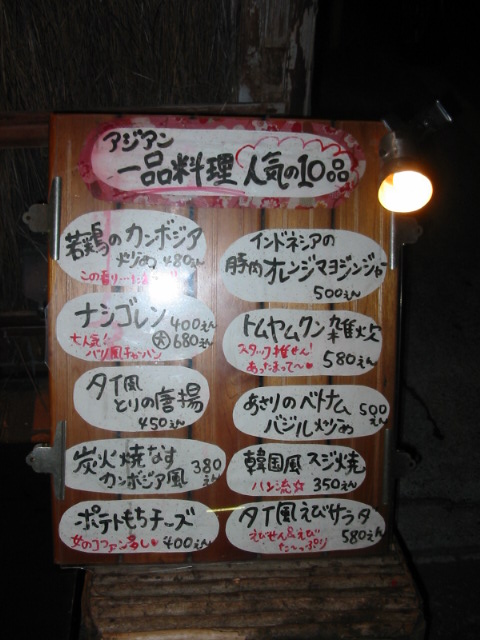 アジアン
一品料理 人気の10品
若鶏のカンボジア
炒め 480えん
この香り…
ナシゴレン 400えん
大人気! 大 680えん
バリ風チャーハン
タイ風
とりの唐揚
450えん
炭火焼なす
カンボジア風 380えん
ポテトもちチーズ
女のコファン多し♥ 400えん
インドネシアの
豚肉オレンジマヨジンジャー
500えん
トムヤムクン雑炊
スタッフ推せん!
あったまって〜♥ 580えん
あさりのベトナム
バジル炒め 500えん
韓国風スジ焼
ハン流☆ 350えん
タイ風えびサラダ
えびせん&えび
た〜っぷり 580えん